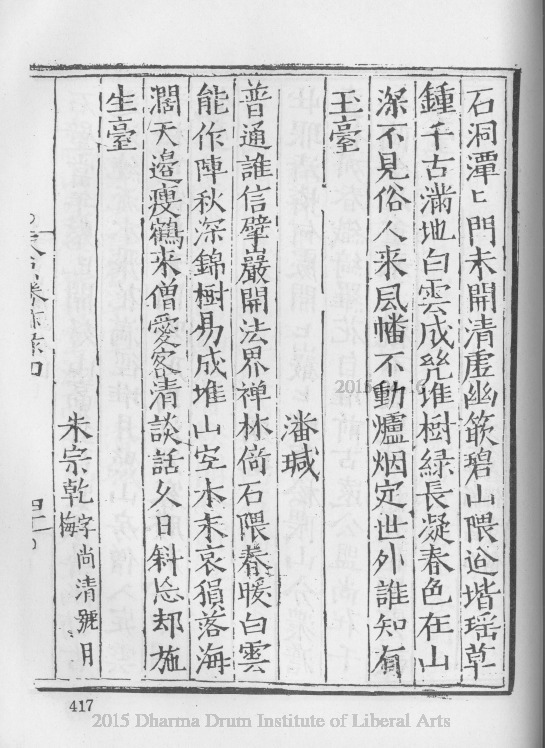 石洞潭〻門未開清虛幽籨碧山隈遶堦瑶草
鍾千古滿地白雲成幾堆樹緑長凝春色在山
深不見俗人来風幡不動爐烟定世外誰知有
玉臺
潘珹
普通誰信擘嚴開法界禅林倚石隈春暖白雲
能作陣秋深錦樹易成堆山空木末哀猿落海
濶天邊瘦鶴来僧愛客清談話久日斜忘却施
生臺
朱宗乾字尚清號月
梅
417
2015 Dharma Drum Institute of Liberal Arts